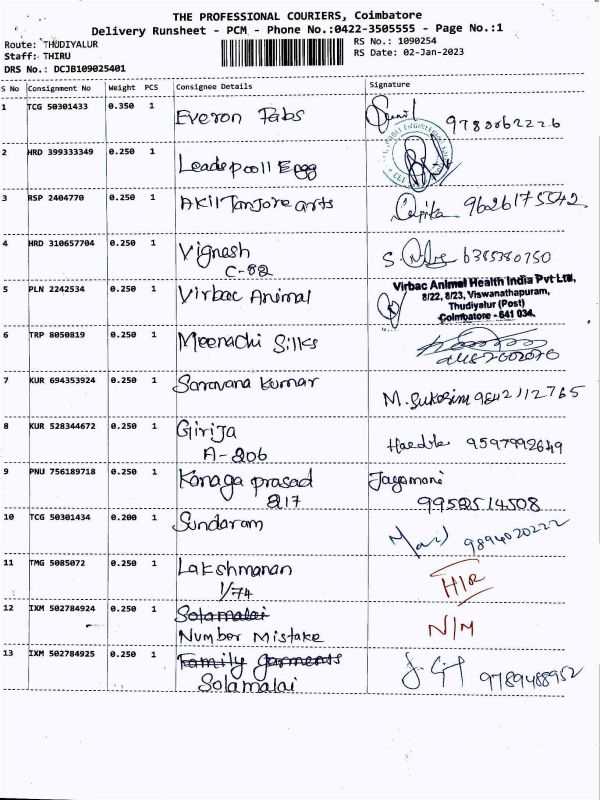 THE PROFESSIONAL COURIERS, Coimbatore
Delivery Runsheet - PCM - Phone No.:0422-3505555 - Page No.:1
Route: THUDIYALUR
RS No.: 1090254
Staff: THIRU
RS Date: 02-Jan-2023
DRS No.: DCJB109025401
S No Consignment No Weight PCS Consignee Details Signature
1 TCG 50301433 0.350 1 Everon Fabs
2 HRD 399333349 0.250 1 Leadspooll Egg
3 RSP 2404770 0.250 1 Akil Tanjore arts 9626175542
4 HRD 310657704 0.250 1 Vignesh
C-82
5 PLN 2242534 0.250 1 Virbac Animal
Virbac Animal Health India Pvt Ltd,
8/22, 8/23, Viswanathapuram,
Thudiyalur (Post)
Coimbatore - 641 034.
6 TRP 8050819 0.250 1 Meenachi Silks
7 KUR 694353924 0.250 1 Saravana kumar M. 9842112765
8 KUR 528344672 0.250 1 Girija 9597992649
A-206
9 PNU 756189718 0.250 1 Kanaga prasad Jayamani
217 9952514508
10 TCG 50301434 0.200 1 Sundaram 9894020222
11 TMG 5085072 0.250 1 Lakshmanan
1/74
12 IXM 502784924 0.250 1 Solamalai N/M
Number Mistake
13 IXM 502784925 0.250 1 Family garments 9789488952
Solamalai